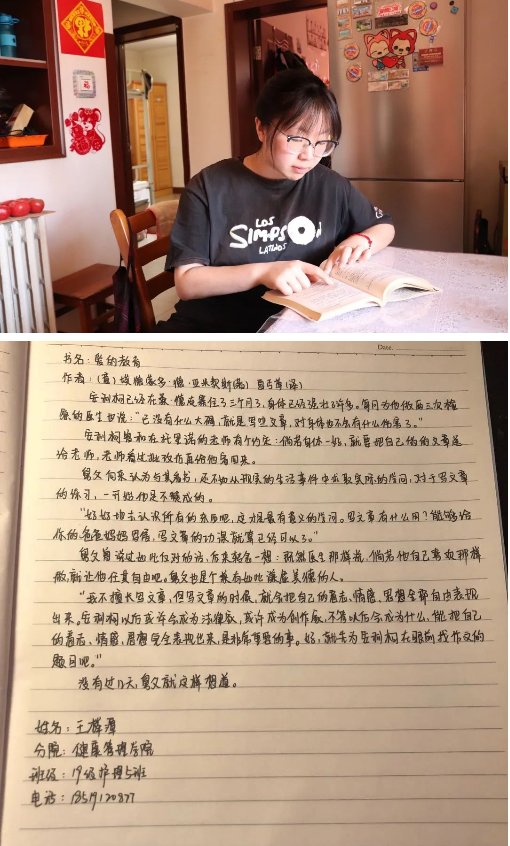 LOS
SIMPSO
LATINOS
Date.
书名：爱的教育
作者：(意) 埃德蒙多·德·亚米契斯(著)
安利柯已经在 住了三个月了，身体已经强壮了许多。每月为他做两三次检
查的医生也说："已没有什么大碍，就是写些文章，对身体也不会有什么伤害了。"
安利柯 和在托里诺的老师有个约定：倘若身体一好，就要把自己的文章送
给老师，老师看过批改后再给他寄回来。
舅父向来认为与其看书，还不如从现实的生活事件中求取实际的学问，对于写文章
的练习，一开始他是不赞成的。
"好好地去认识所有的东西吧，这才是最有意义的学问。写文章有什么用？能够给
你的爸爸妈妈写信，写文章的功课就算已经可以了。"
舅父曾说过如此反对的话，后来转念一想：既然医生那样说，倘若他自己喜欢那样
做，就让他任其自由吧。舅父也是个 有如此谦虚美德的人。
"我不擅长写文章，但写文章的时候，就会把自己的意志、情感、思想全部自由表现
出来。安利柯以后或许会成为法律家，或许成为创作家，不管以后会成为什么，能把自己
的意志、情感、思想完全表现出来，是非常重要的事。好，就先为安利柯在眼前找作文的
题目吧。"
没有过几天，舅父就这样想道。
姓名：王
分院：健康管理学院
班级：19级护理5班
电话：